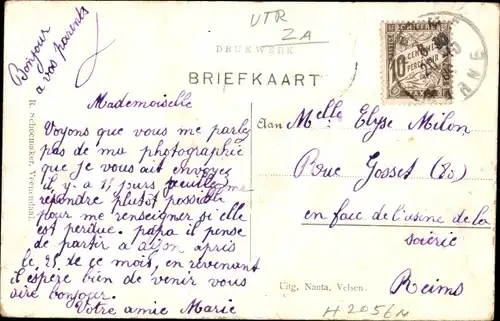 Bonjour
a vos parents
UTR
ZA
DRUKWERK
BRIEFKAART
10
CENTIMES
PERCEVOIR
R. Schoemaker, Veenendaal.
Mademoiselle
Voyons que vous me parle
pas de ma photographie
que je vous ait envoyez
il y a 15 jours veuillez me
répondre plutôt possible
pour me renseigner si elle
est perdue. papa il pense
de partir a après
le 25 de ce mois, en revenant
il espère bien de venir vous
dire bonjour.
Votre amie Marie
Aan Melle Elyse Milon
Rue Josset
en face de l'usine de la
soierie
Reims
Uitg. Nauta, Velsen.
H 2056 N